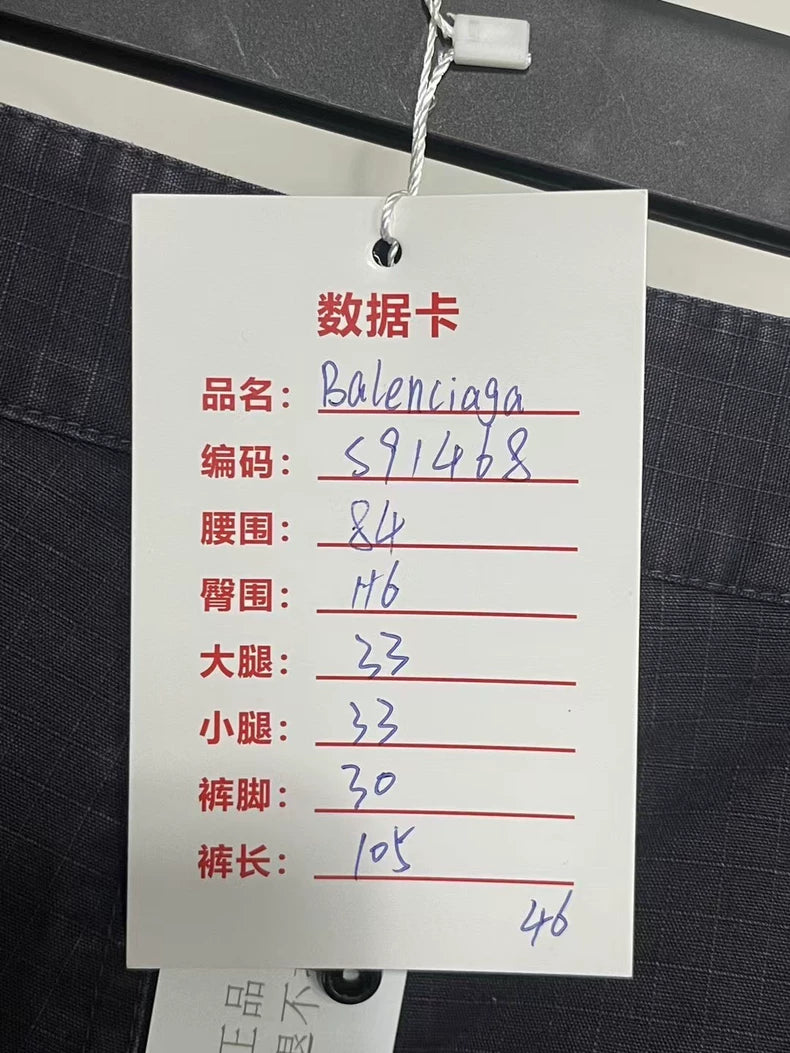 数据卡
品名： Balenciaga
编码： 591468
腰围： 84
臀围： 116
大腿： 33
小腿： 33
裤脚： 30
裤长： 105
46
正品
退不